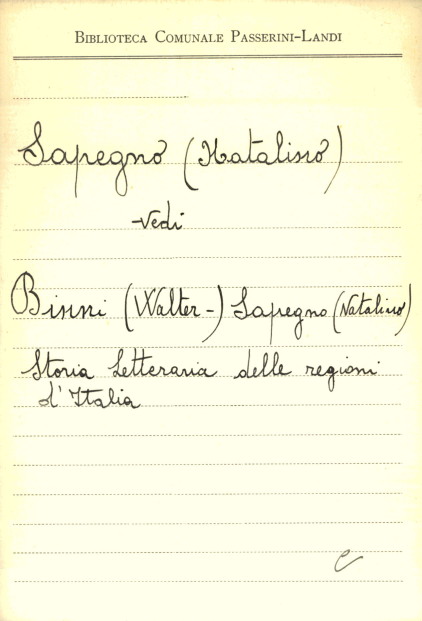 Biblioteca Comunale Passerini-Landi
Sapegno (Natalino)
-vedi
Binni (Walter-) Sapegno (Natalino)
Storia letteraria delle regioni
d'Italia